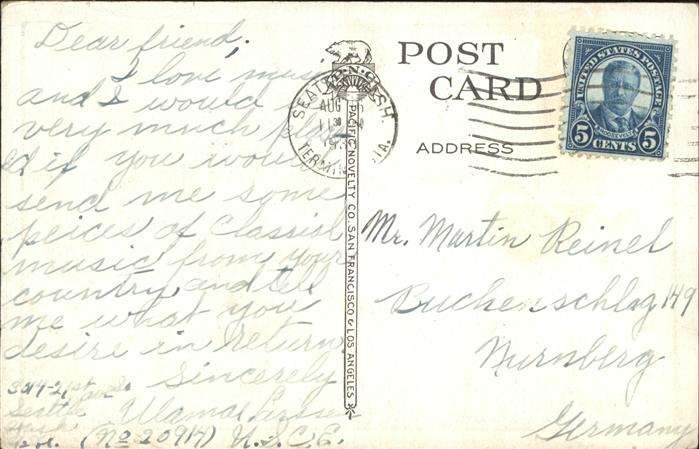 Dear friend,
I love music
and I would
very much
if you would
send me some
peices of Classical
music from your
country and tell
me what you
desire in return.
Sincerely
Seattle
Wash
(No 20917) U.S.C.E.
PACIFIC NOVELTY CO. SAN FRANCISCO & LOS ANGELES
P.N.CO.
POST
CARD
ADDRESS
SEATTLE WASH.
AUG
TERMINAL STA.
UNITED STATES POSTAGE
ROOSEVELT
5 CENTS 5
Mr. Martin Reinel
149
Nurnberg
Germany